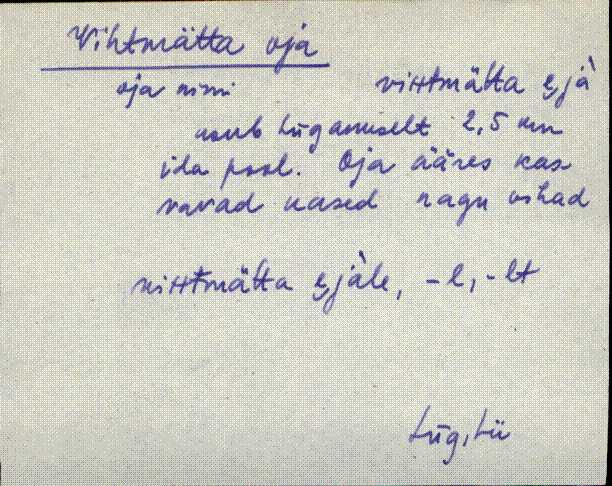 Vihtmätta oja
oja nimi vihtmätta ẹjà
asub Lüganuselt 2,5 km
ida pool. Oja ääres kas
vavad kased nagu vihad
vihtmätta ẹjàle, -l, -lt
Lüg, Lü